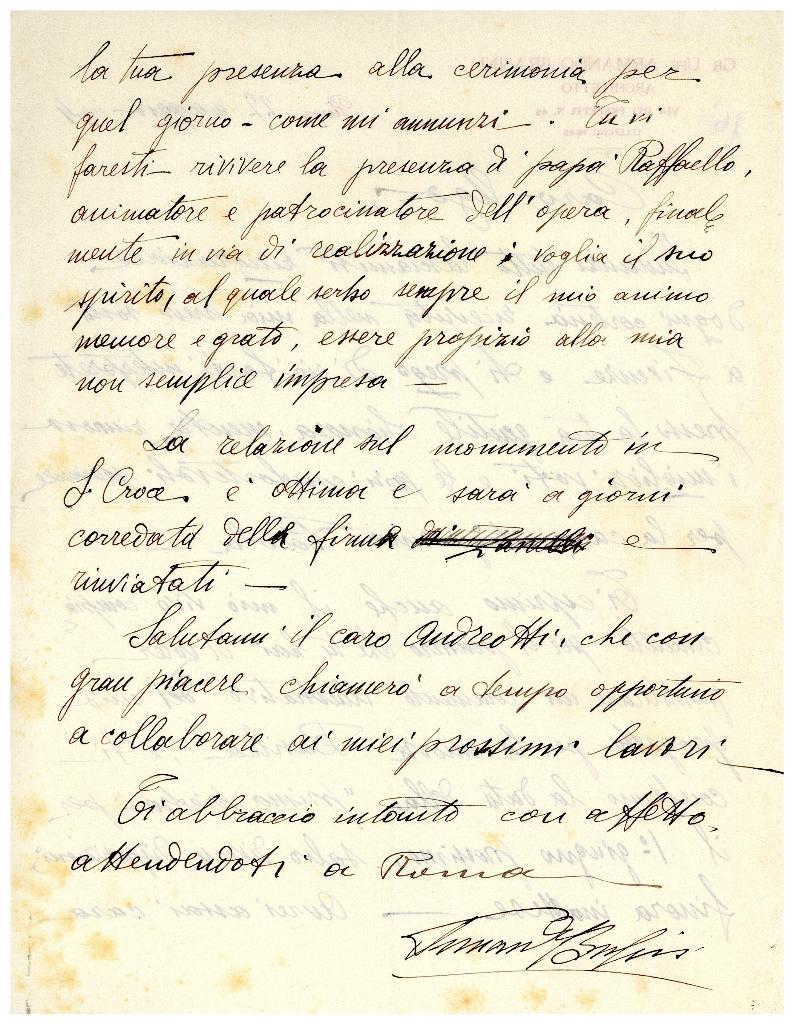 la tua presenza alla cerimonia per
quel giorno - come mi annunzi. Tu mi
faresti rivivere la presenza di papà Raffaello,
animatore e patrocinatore dell'opera, final
mente in via di realizzazione; voglia il suo
spirito, al quale serbo sempre il mio animo
memore e grato, essere propizio alla mia
non semplice impresa —
La relazione sul monumento in
S. Croce è ottima e sarà a giorni
corredata della firma e
rinviatati —
Salutami il caro Andreotti, che con
gran piacere chiamerò a tempo opportuno
a collaborare ai miei prossimi lavori
Ti abbraccio intanto con affetto,
attendendoti a Roma